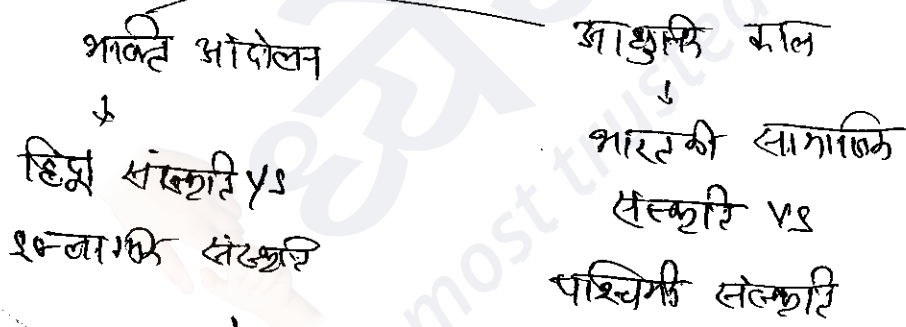 भक्ति आंदोलन
↓
हिन्दू संस्कृति vs
इस्लामिक संस्कृति
आधुनिक काल
↓
भारत की सामाजिक
संस्कृति vs
पश्चिमी संस्कृति
most trusted